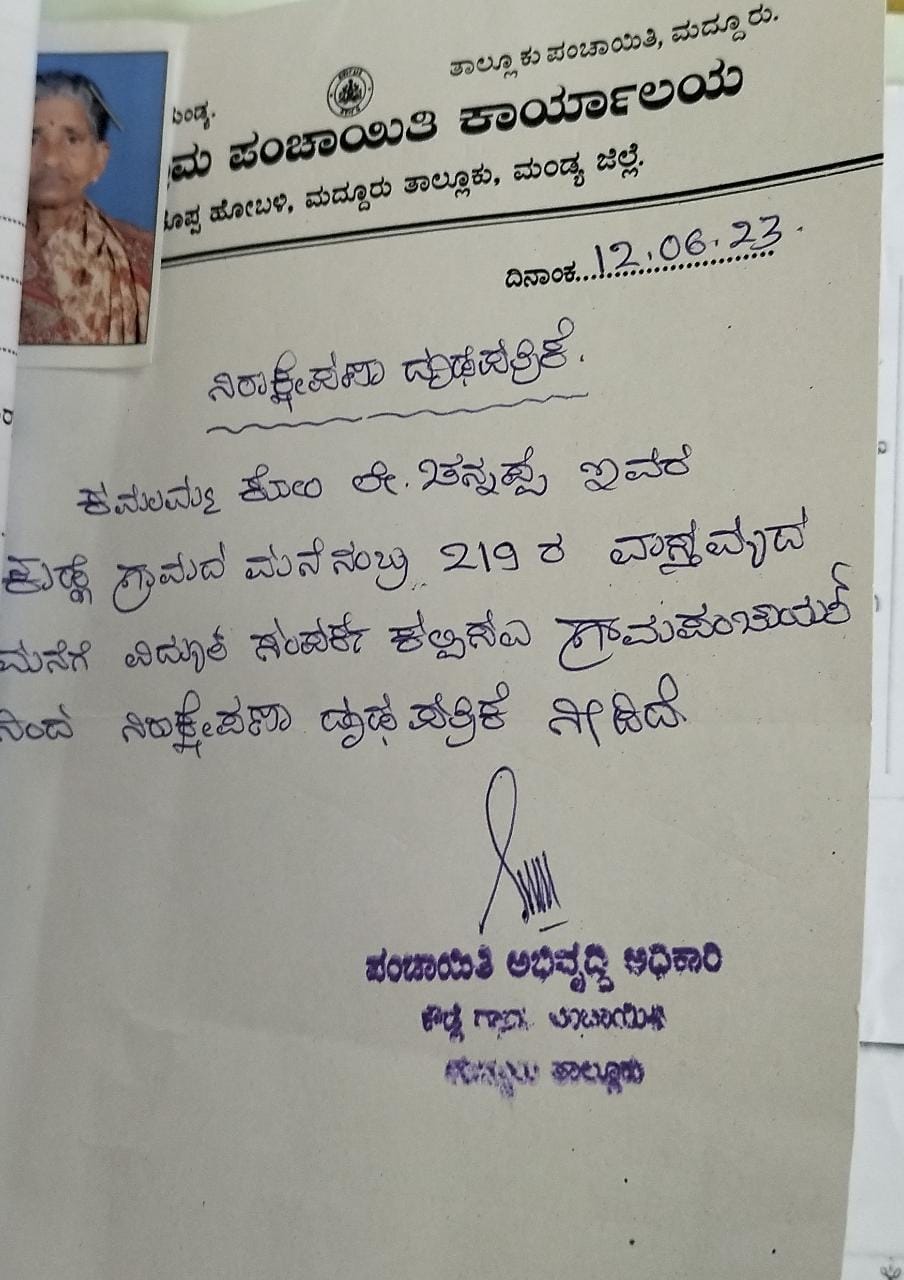 ತಾಲ್ಲೂಕು ಪಂಚಾಯಿತಿ, ಮದ್ದೂರು.
ಮಂಡ್ಯ.
ಮ ಪಂಚಾಯಿತಿ ಕಾರ್ಯಾಲಯ
ಕೊಪ್ಪ ಹೋಬಳಿ, ಮದ್ದೂರು ತಾಲ್ಲೂಕು, ಮಂಡ್ಯ ಜಿಲ್ಲೆ.
ದಿನಾಂಕ...12.06.23.
ನಿರಾಕ್ಷೇಪಣಾ ದೃಢಪತ್ರಿಕೆ.
ಕಮಲಮ್ಮ ಕೋಂ ಲೇ. ಚನ್ನಪ್ಪ ಇವರ
ಗ್ರಾಮದ ಮನೆ ನಂಬ್ರ 219 ರ ವಾಸ್ತವ್ಯದ
ಮನೆಗೆ ವಿದ್ಯುತ್ ಸಂಪರ್ಕ ಕಲ್ಪಿಸಲು ಗ್ರಾಮಪಂಚಾಯಿತಿ
ನಿಂದ ನಿರಾಕ್ಷೇಪಣಾ ದೃಢಪತ್ರಿಕೆ ನೀಡಿದೆ
ಪಂಚಾಯಿತಿ ಅಭಿವೃದ್ಧಿ ಅಧಿಕಾರಿ
ಗ್ರಾಮ ಪಂಚಾಯಿತಿ
ತಾಲ್ಲೂಕು